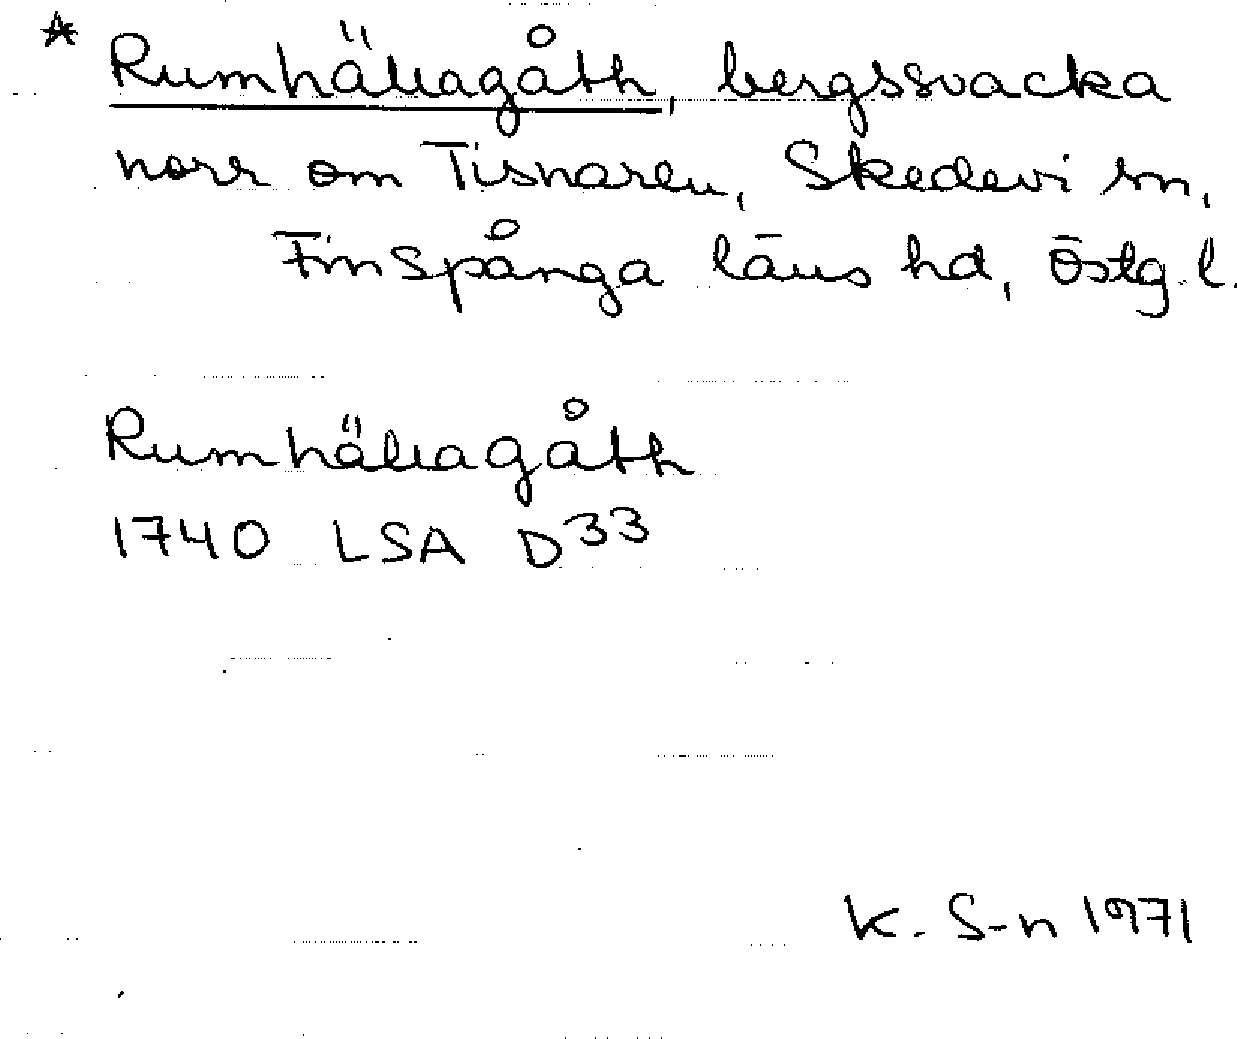 * Rumhällagåth, bergssvacka
norr om Tisnaren, Skedevi sn,
Finspånga läns hd, Östg. l.
Rumhällagåth
1740 LSA D33
K. S-n 1971